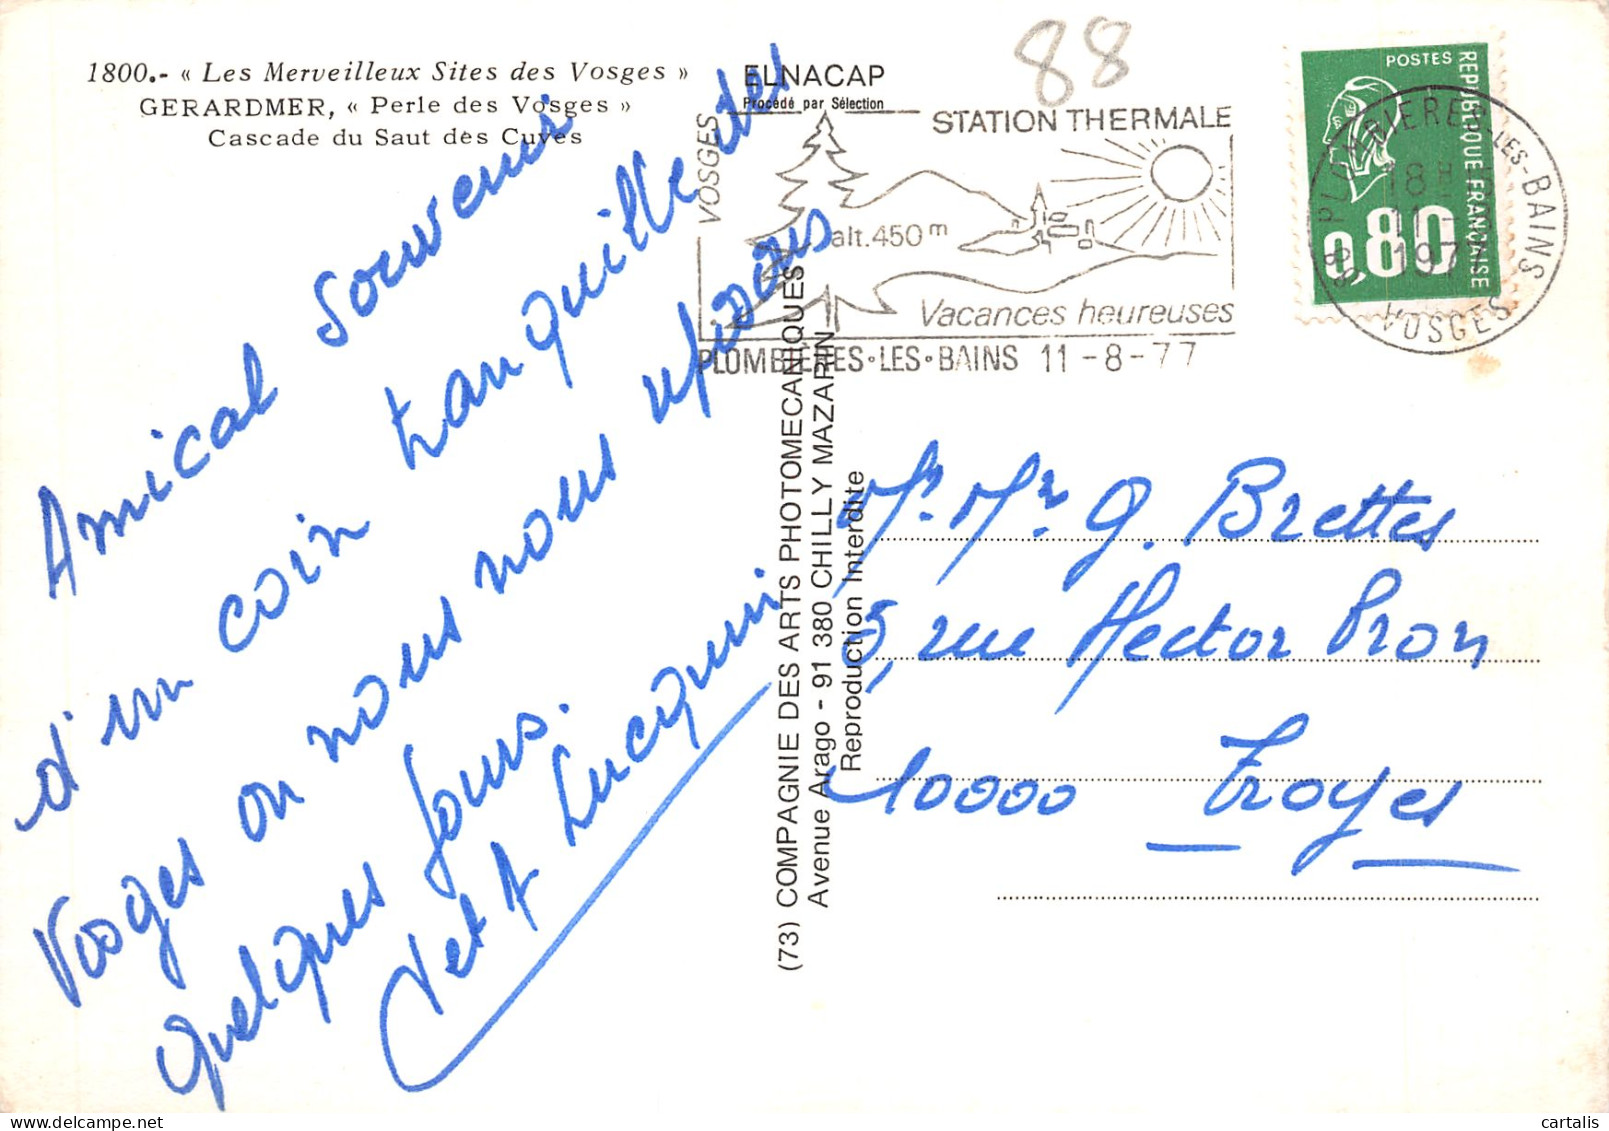 1800.- « Les Merveilleux Sites des Vosges »
GERARDMER, « Perle des Vosges »
Cascade du Saut des Cuves
ELNACAP
Procédé par Sélection
88
VOSGES
STATION THERMALE
alt.450m
Vacances heureuses
PLOMBIÈRES·LES·BAINS 11-8-77
POSTES
REPUBLIQUE FRANÇAISE
0,80
88 PLOMBIERES-LES-BAINS
18H
11-8
1977
VOSGES
Amical Souvenir
d'un coin tranquille des
Vosges où nous nous reposons
quelques jours.
et A Lucquin
(73) COMPAGNIE DES ARTS PHOTOMECANIQUES
Avenue Arago - 91 380 CHILLY MAZARIN
Reproduction Interdite
Mr. Mr G. Brettes
5, rue Hector Pron
10000 Troyes
cartalis
delcampe.net